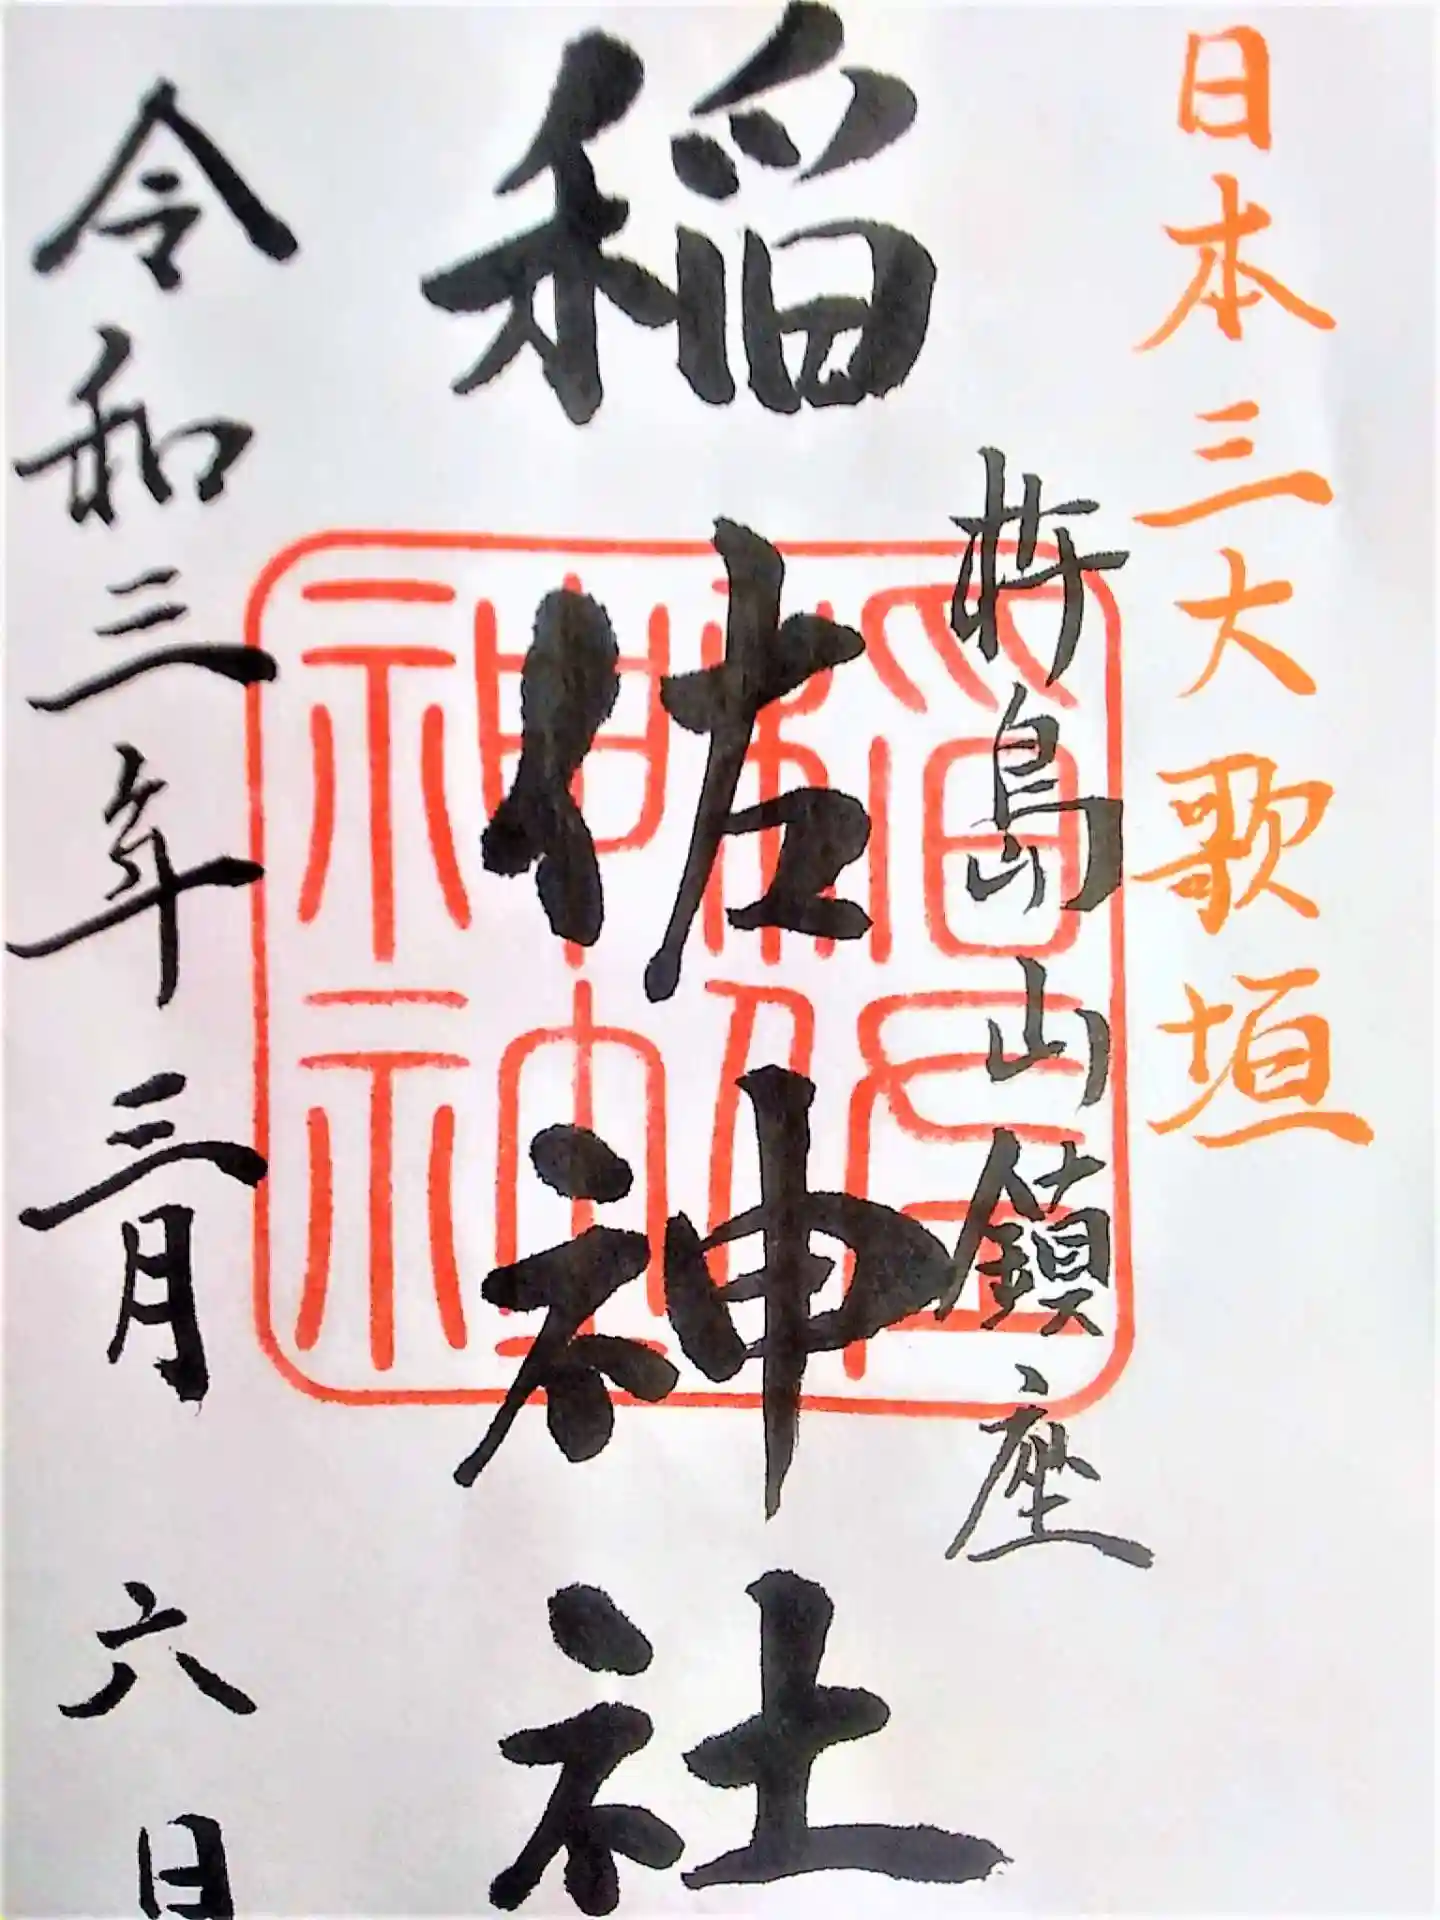 日本三大歌垣
杵島山鎮座
稲佐神社
稲佐神社
令和三年三月六日